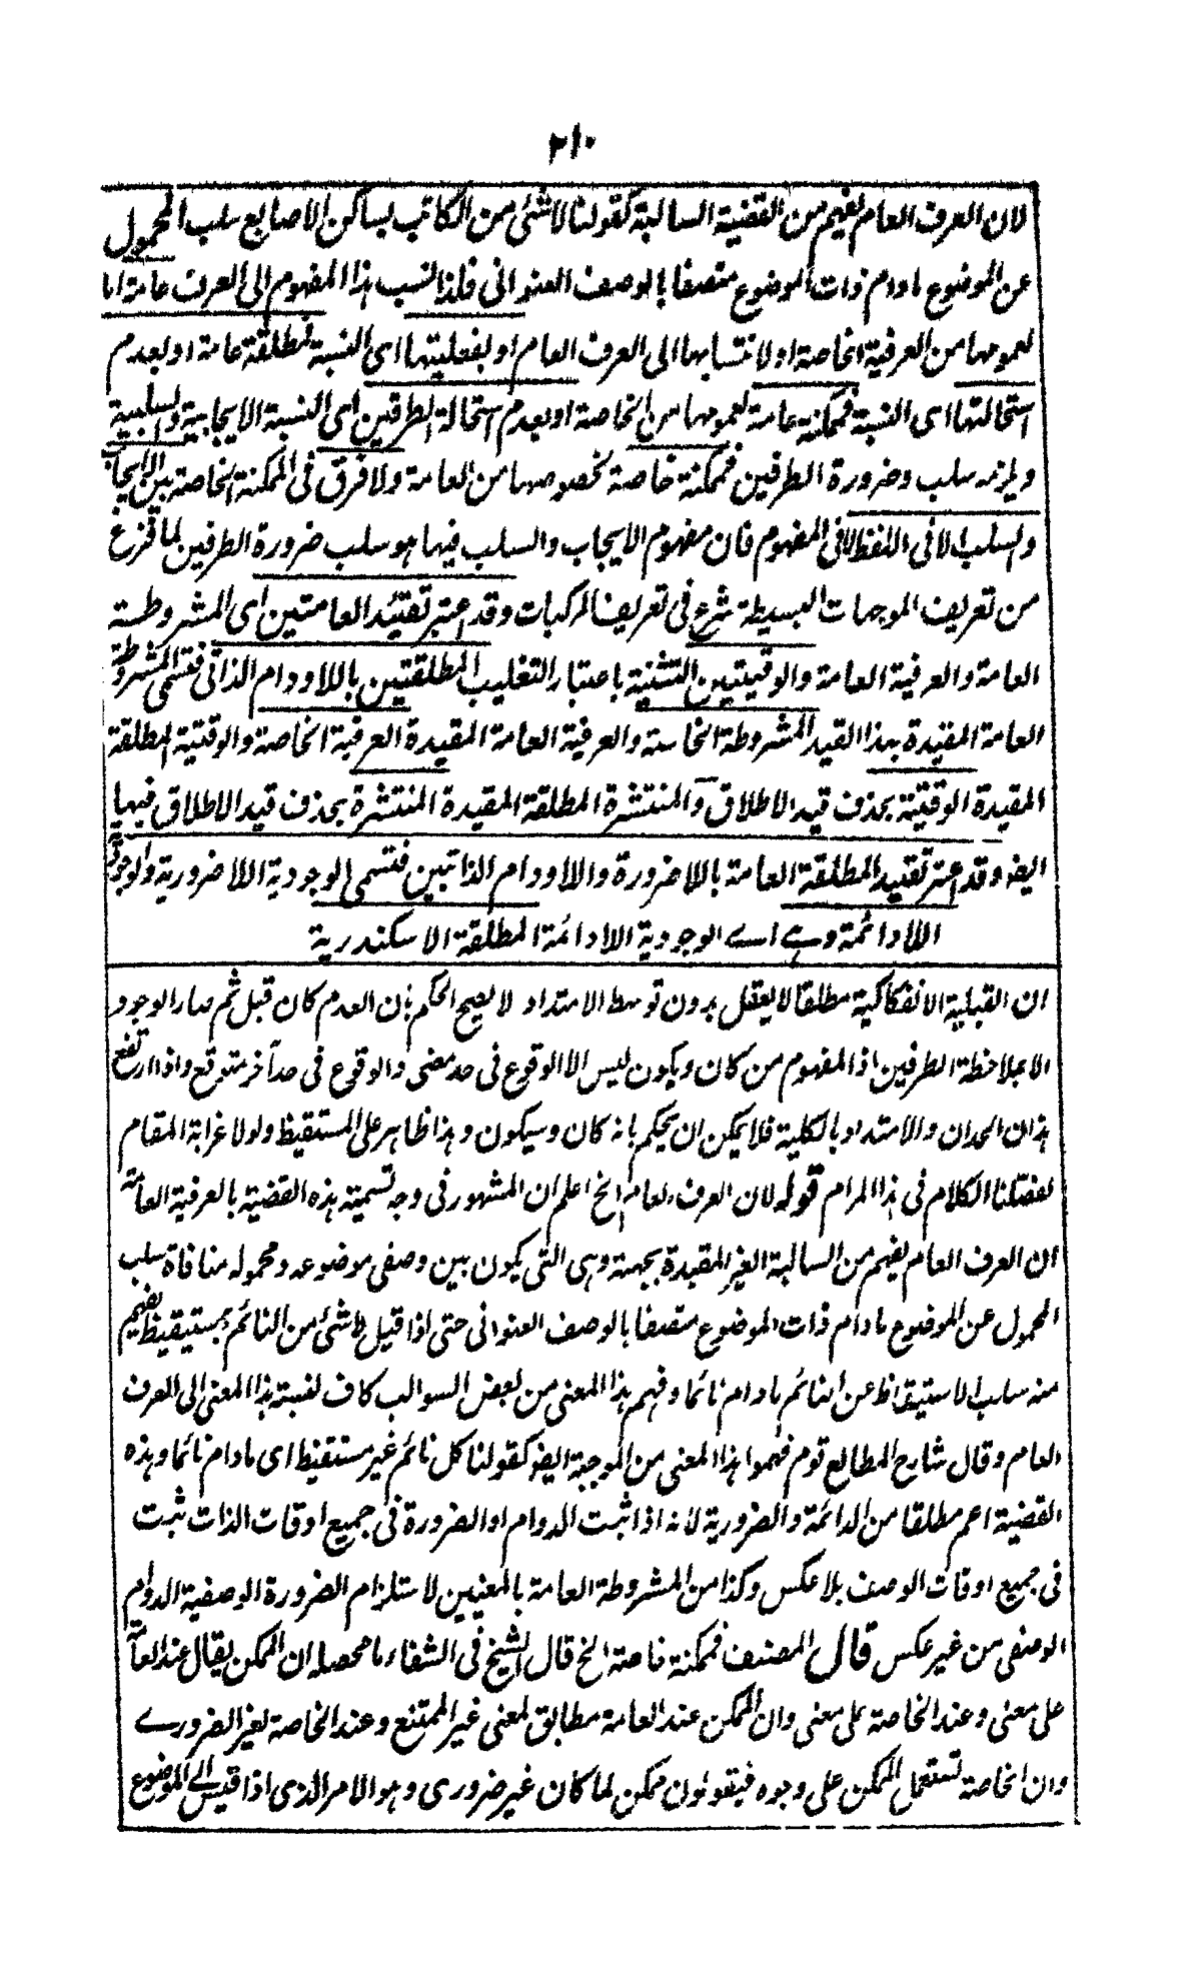 ٢١٠
لان العرف العام يفهم من القضية السالبة كقولنا لا شئ من الكاتب بساكن الاصابع سلب المحمول
عن الموضوع مادام ذات الموضوع متصفا بالوصف العنوانى فلذا نسب هذا المفهوم الى العرف عامة اما
لعمومها من العرفية الخاصة او لانتسابها الى العرف العام او بفعليتها اى النسبة فمطلقة عامة او بعدم
استحالتها اى النسبة فممكنة عامة لعمومها من الخاصة او بعدم استحالة الطرفين اى النسبة الايجابية والسلبية
ويلزمه سلب وضرورة الطرفين فممكنة خاصة لخصوصها من العامة ولا فرق فى الممكنة الخاصة بين الايجاب
والسلب الا فى اللفظ لا فى المفهوم فان مفهوم الايجاب والسلب فيها هو سلب ضرورة الطرفين لما فرغ
من تعريف الموجهات البسيطة شرع فى تعريف المركبات وقد اعتبر تقييد العامتين اى المشروطة
العامة والعرفية العامة والوقتيتين التثنية باعتبار التغليب المطلقتين باللادوام الذاتى فتسمى المشروطة
العامة المقيدة بهذا القيد المشروطة الخاصة والعرفية العامة المقيدة العرفية الخاصة والوقتية المطلقة
المقيدة الوقتية بحذف قيد الاطلاق والمنتشرة المطلقة المقيدة المنتشرة بحذف قيد الاطلاق فيها
ايضا وقد اعتبر تقييد المطلقة العامة باللاضرورة واللادوام الذاتيين فتسمى الوجودية اللاضرورية والوجودية
اللادائمة وهے اے الوجودية اللادائمة المطلقة الاسكندرية
ان القبلية الانفكاكية مطلقا لا يعقل بدون توسط الامتداد لا يصح الحكم بان العدم كان قبل ثم صار الوجود
الا بملاحظة الطرفين اذ المفهوم من كان ويكون ليس الا الوقوع فى حد مضى والوقوع فى حد آخر متوقع واذا ارتفع
هذان الحدان والامتداد بالكلية فلا يمكن ان يحكم بانه كان وسيكون وهذا ظاهر على المستقيظ ولولا غرابة المقام
لفصلنا الكلام فى هذا المرام قوله لان العرف العام الخ اعلم ان المشهور فى وجه تسمية هذه القضية بالعرفية العامة
ان العرف العام يفهم من السالبة الغير المقيدة بجهة وهى التى يكون بين وصفى موضوعه ومحموله منافاة سلب
المحمول عن الموضوع مادام ذات الموضوع متصفا بالوصف العنوانى حتى اذا قيل لا شئ من النائم بمستيقيظ يفهم
منه سلب الاستيقاظ عن النائم مادام نائما وفهم هذا المعنى من بعض السوالب كاف لنسبة هذا المعنى الى العرف
العام وقال شارح المطالع قوم فهموا هذا المعنى من الموجبة ايضا كقولنا كل نائم غير مستقيظ اى مادام نائما وهذه
القضية اعم مطلقا من الدائمة والضرورية لانه اذا ثبت الدوام او الضرورة فى جميع اوقات الذات ثبت
فى جميع اوقات الوصف بلا عكس وكذا من المشروطة العامة بالمعنيين لاستلزام الضرورة الوصفية الدوام
الوصفى من غير عكس قال المصنف فممكنة خاصة الخ قال الشيخ فى الشفاء ما محصله ان الممكن يقال عند العامة
على معنى وعند الخاصة على معنى وان الممكن عند العامة مطابق لمعنى غير الممتنع وعند الخاصة لغير الضرورے
وان الخاصة تستعمل الممكن على وجوه فيقولون ممكن لما كان غير ضرورى وهو الامر الذى اذا قيس الى الموضوع